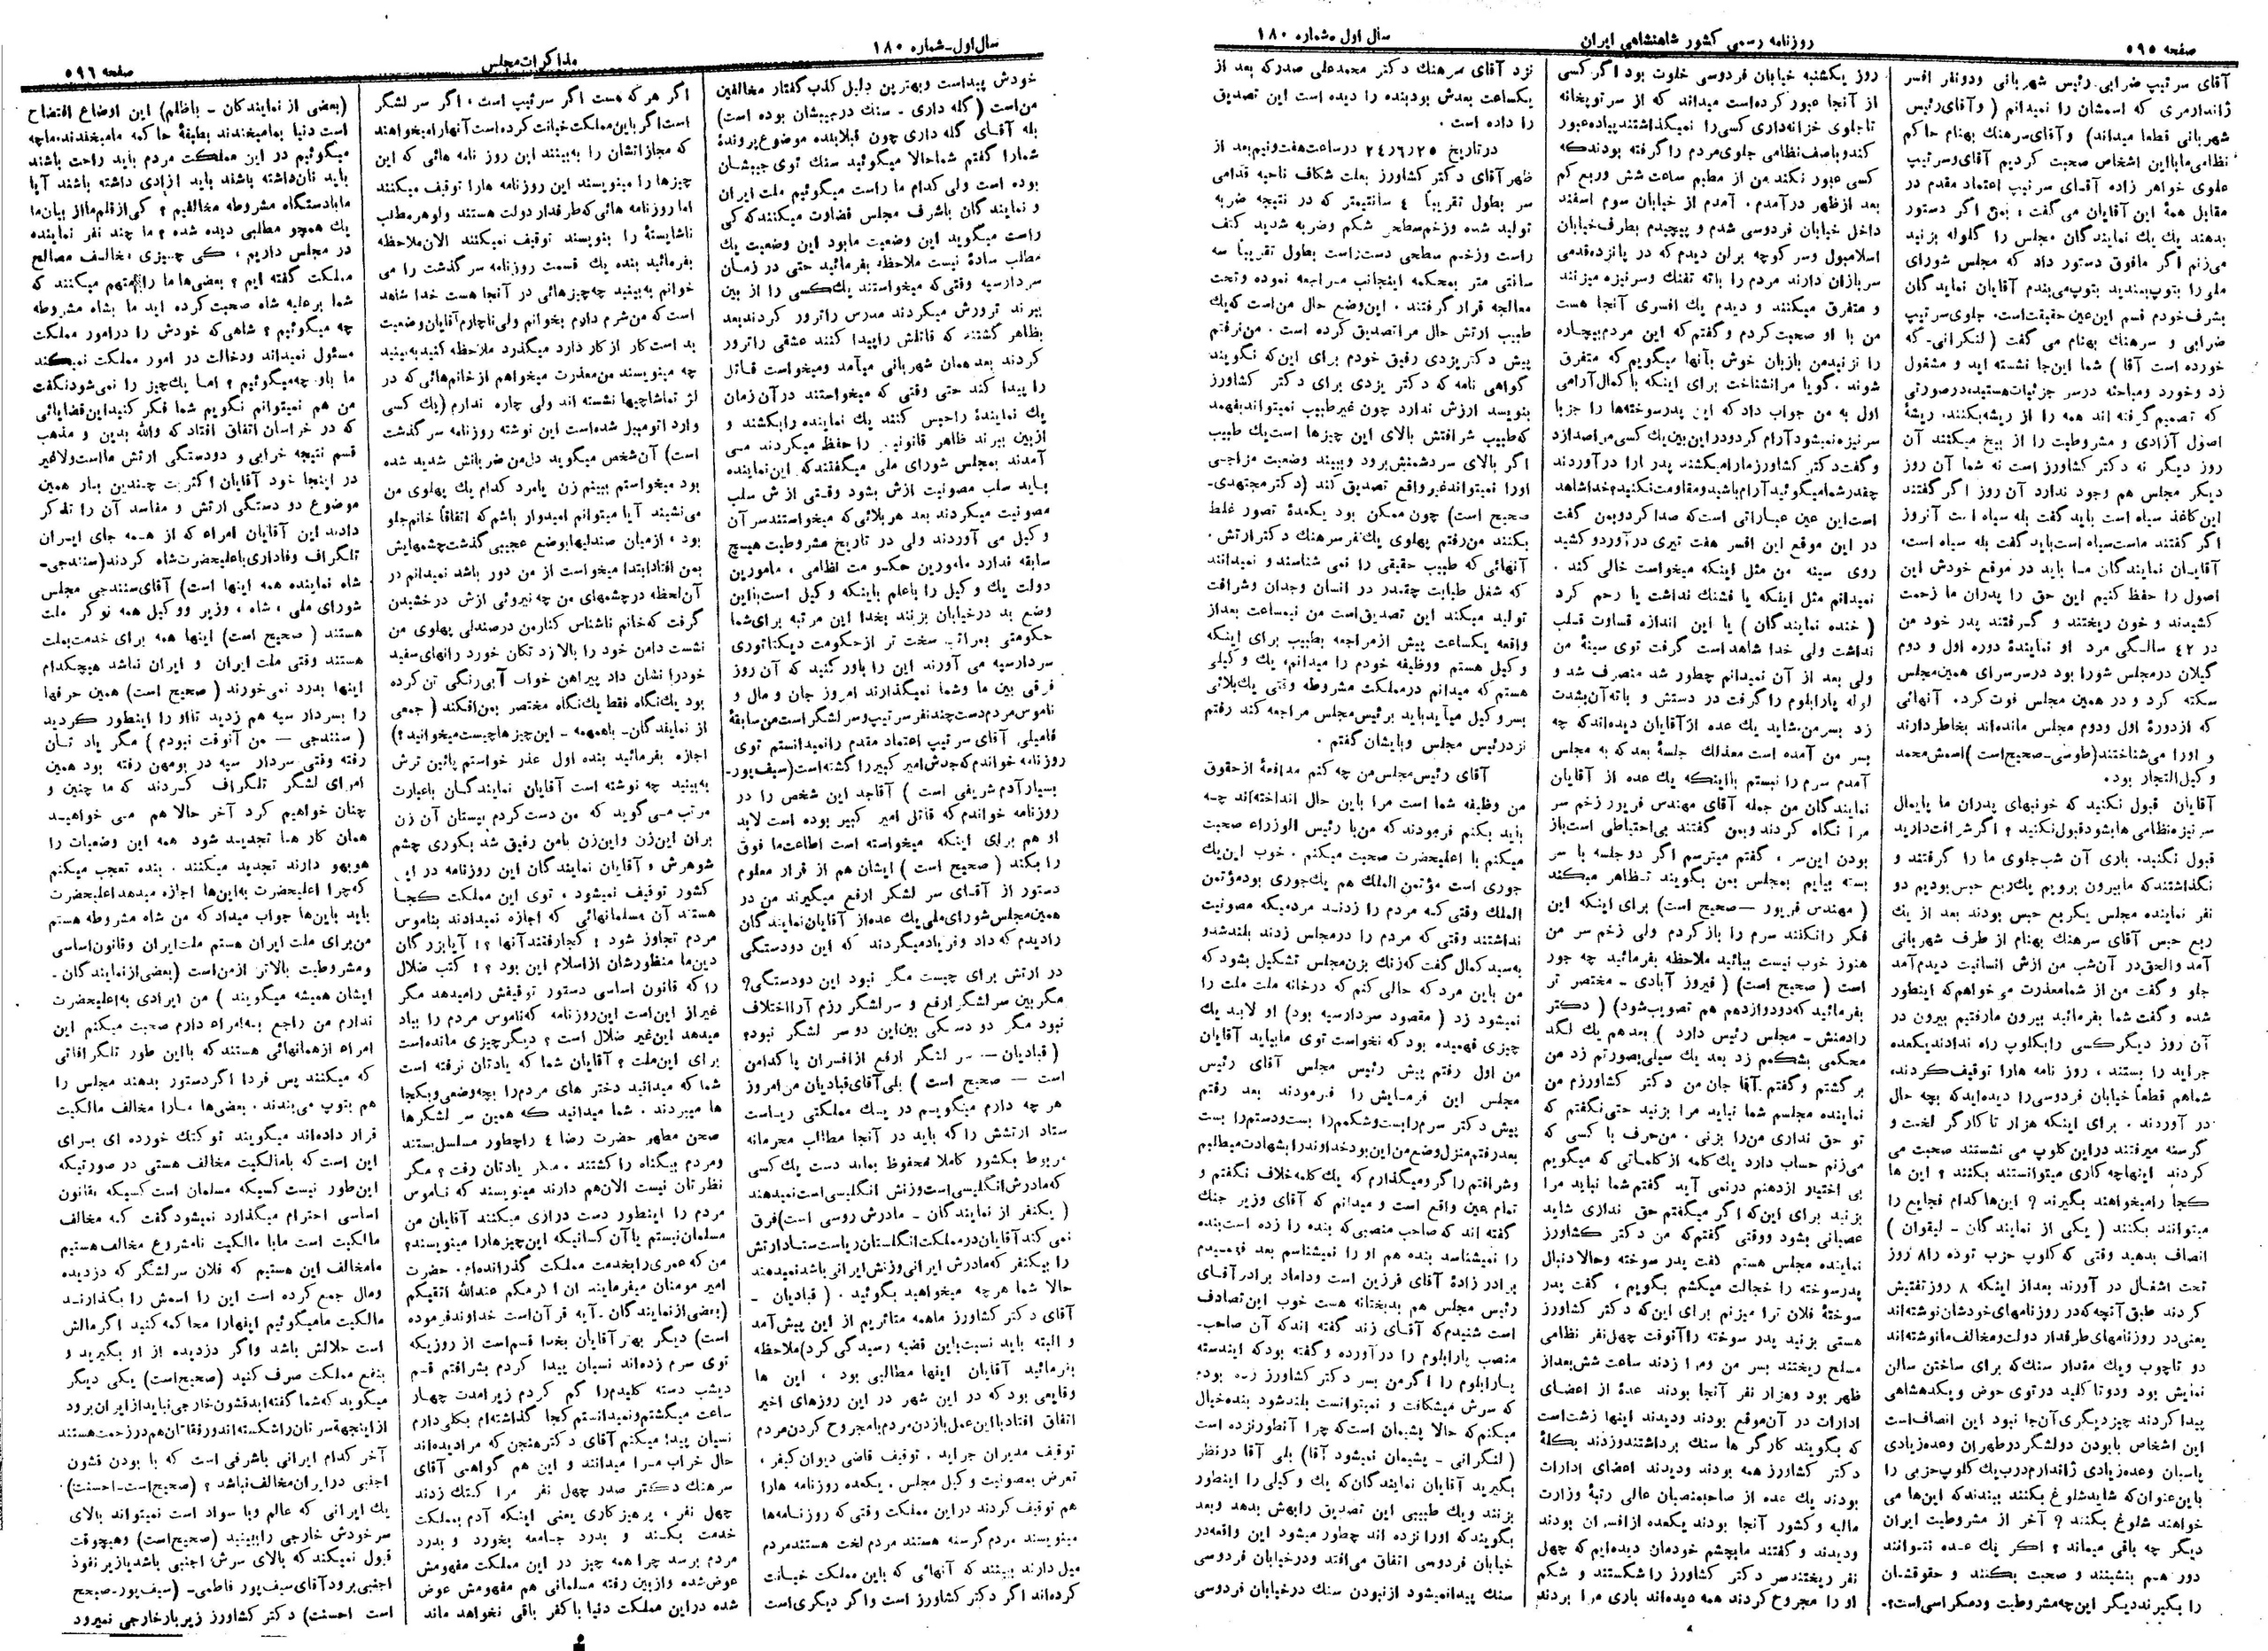 صفحه ۵۹۵
روزنامه رسمی کشور شاهنشاهی ایران
سال اول شماره ۱۸۰
آقای سرتیپ ضرابی رئیس شهربانی ودونفر افسر
ژاندارمری که اسمشان را نمیدانم ( وآقای‌رئیس
شهربانی قطعا میداند) وآقای‌سرهنك بهنام حاکم
نظامی‌ما بااین اشخاص صحبت کردیم آقای‌وسرتیپ
علوی خواهر زاده آقـای سرتیپ اعتماد مقدم در
مقابل همهٔ این آقایان می‌گفت ، بمن اگر دستور
بدهند یك یك نمایندگان مجلس را گلوله بزنید
می‌زنم اگر مافوق دستور داد که مجلس شورای
ملی‌را بتوپ‌ببندید بتوپ‌می‌بندم آقایان نمایندگان
بشرف‌خودم قسم این‌عین‌حقیقت‌است. جلوی‌سرتیپ
ضرابی و سرهنك بهنام می گفت ( لنکرانی- که
خورده است آقا ) شما این‌جا نشسته اید و مشغول
زد وخورد ومباحثه درسر جزئیات‌هستید، درصورتی
که تصمیم گرفته اند همه را از ریشه‌بکنند. ریشهٔ
اصول آزادی و مشروطیت را از بیخ میکنند آن
روز دیگر نه دکتر کشاورز است نه شما آن روز
دیگر مجلس هم وجود ندارد آن روز اگر گفتند
این‌کاغذ سیاه است باید گفت بله سیاه است آنروز
اگر گفتند ماست‌سیاه است‌باید گفت بله سیاه است،
آقایـان نمایندگان مـا باید در موقع خودش این
اصول را حفظ کنیم این حق را پدران ما زحمت
کشیدند و خون ریختند و گـرفتند پدر خود من
در ۴۲ سالـگی مرد او نمایندهٔ دوره اول و دوم
گیلان درمجلس شورا بود درسرسرای همین‌مجلس
سکته کرد و در همین مجلس فوت‌کرد. آنهائی
که ازدورهٔ اول ودوم مجلس مانده‌اند بخاطر دارند
و اورا می‌شناختند(طوسی-صحیح‌است )اسمش‌محمد
وکیل‌التجار بود.
آقایان قبول نکنید که خونبهای پدران ما پایمال
سر نیزه‌نظامی‌ها بشودقبول‌نکنید ؟ اگرشرافت‌دارید
قبول نگنید. باری آن شب‌جلوی ما را گرفتند و
نگذاشتندکه مابیرون برویم یك‌ربع حبس‌بودیم دو
نفر نماینده مجلس یکربع حبس بودند بعد از یك
ربع حبس آقای سرهنك بهنام از طرف شهربانی
آمد والحق‌در آن‌شب من ازش انسانیت دیدم‌آمد
جلو و گفت من از شمامعذرت می‌خواهم‌که اینطور
شده و گفت شما بفرمائید بیرون مارفتیم بیرون در
آن روز دیگر کسی رابکلوپ راه ندادندیکعده
جراید را بستند ، روز نامه هارا توقیف‌کردند،
شماهم قطعاً خیابان فردوسی‌را دیده‌ایدکه بچه حال
در آوردند . برای اینکه هزار تا کارگر لخت و
گرسنه میرفتند دراین‌کلوپ می نشستند صحبت می
کردند اینهاچه‌کاری میتوانستند بکنند ؟ این ها
کجا رامیخواهند بگیرند ؟ این‌ها کدام فجایع را
میتوانند بکنند ( یکی از نمایندگان – لیقوان )
انصاف بدهید وقتی که کلوپ حزب توده را ۸ روز
تحت اشغـال در آورند بعداز اینکه ۸ روز تفتیش
کردند طبق آنچه‌که‌در روزنامهای خودشان‌نوشته‌اند
یعنی‌در روزنامهای‌طرفدار دولت‌ومخالف‌مانوشته‌اند
دو تاچوب ویك مقدار سنك‌که برای ساختن سالن
نمایش بود ودوتا کلید درتوی حوض ویکدهشاهی
پیدا کردند چیزدیگری‌آن‌جا نبود این انصاف‌است
این اشخاص بابودن دولشگر درطهران وعده‌زیادی
پاسبان وعده‌زیادی ژاندارم‌درب‌یك‌کلوپ‌حزبی را
باین‌عنوان‌که شاید‌شلوغ بکنند ببندندکه این‌ها می
خواهند شلوغ بکنند ؟ آخر از مشروطیت ایران
دیگر چه باقی میماند ؟ اگـر یك عـده نتـوانند
دور هـم بنشینند و صحبت بکنند و حقوقشـان
را بگیرند‌دیگر این‌چه‌مشروطیت ودمکراسی‌است؟.
روز یکشنبه خیابان فردوسی خلوت بود اگر کسی
از آنجا عبور کرده‌است میداند که از سرتوپخانه
تاجلوی خزانه‌داری کسی‌را نمیگذاشتندپیاده‌عبور
کندوباصف‌نظامی جلوی‌مردم راگرفته بودندکه
کسی عبور نکند من از مطبم ساعت شش وربع کم
بعد ازظهر درآمدم. آمدم از خیابان سوم اسفند
داخل خیابان فردوسی شدم و پیچیدم بطرف‌خیابان
اسلامبول وسر کوچه برلن دیدم‌که در پانزده‌قدمی
سربازان دارند مردم را باته تفنك وسرنیزه میزنند
و متفرق میکنند و دیدم یك افسری آنجا هست
من با او صحبت‌کردم وگفتم‌که این مردم‌بیچاره
را نزنیدمن بازبان خوش بآنها میگویم‌که متفرق
شوند .گویا مرانشناخت برای اینکه با کمال‌آرامی
اول به من جواب داد که این پدرسوخته‌ها را جزبا
سرنیزه‌نمیشودآرام کردودراین‌بین‌یك‌کسی‌مراصدازد
وگفت‌دکتر کشاورزمارامیکشند پدر ارا درآوردند
چقدرشمامیگوئیدآرام‌باشیدومقاومت‌نکنید؟خداشاهد
است‌این عین عباراتی است‌که صداکردوبمن گفت
در این موقع این افسر هفت تیری درآوردوکشید
روی سینه من مثل اینکه میخواست خالی کند .
نمیدانم مثل اینکه یا فشنك نداشت یا رحم کرد
( خنده نمایندگان ) یا این اندازه قساوت قـلب
نداشت ولی خدا شاهد است گرفت توی سینهٔ من
ولی بعد از آن نمیدانم چطور شد منصرف شد و
لوله پارابلوم راگرفت در دستش و باته‌آن‌بشدت
زد بسرمن.شاید یك عده ازآقایان دیده‌اندکه چه
بسر من آمده است معذلك جلسهٔ بعد که به مجلس
آمدم سرم را نبستم بااینکه یك عده از آقایان
نمایندگان من جمله آقای مهندس فریور زخم سر
مرا نگاه کردند وبمن گفتند بی‌احتیاطی است‌باز
بودن این‌سر ، گفتم میترسم اگر دوجلسه با سر
بسته بیایم بمجلس بمن بگویند تـظاهر میـکند
( مهندس فریور –صحیح است) برای اینکه این
فکر رانکنند سرم را بازکردم ولی زخم سر من
هنوز خوب نیست بیائید ملاحظه بفرمائید چه جور
است ( صحیح است) ( فیروز آبادی - مختصر تر
بفرمائید که‌دودوازدهم هم تصویب‌شود) ( دکتر
رادمنش - مجلس رئیس دارد ) بعدهم یك لگد
محکمی بشکمم زد بعد یك سیلی‌بصورتم زد من
برگشتم وگفتم.آقا جان‌من دکتر کشاورزم من
نماینده مجلسم شما نباید مرا بزنید حتی‌نگفتم که
تو حق نداری من‌را بزنی . من‌حرف با کسی که
می‌زنم حساب دارد یك‌کلمه ازکلماتی که میگویم
بی اختیار ازدهنم درنمی آید گفتم‌شما نباید مرا
بزنید برای این‌که اگر میگفتم حق نداری شاید
عصبانی بشود ووقتی گفتم‌که من دکتر کشاورز
نماینده مجلس هستم گفت پدر سوخته وحالادنبال
پدرسوخته را خجالت میکشم بگویم ، گفت پدر
سوختهٔ فلان ترا میزنم برای این‌که دکتر کشاورز
هستی بزنید پدر سوخته را‌آنوقت چهل‌نفر نظامی
مسلح ریختند بسر من ومرا زدند ساعت شش‌بعداز
ظهر بود وهزار نفر آنجا بودند عدهٔ از اعضای
ادارات در آن‌موقع بودند ودیدند اینها زشت‌است
که بگویند کارگر ها سنك برداشتندوزدند بکلهٔ
دکتر کشاورز همه بودند ودیدند اعضای ادارات
بودند یك عده از صاحبمنصبان عالی رتبهٔ وزارت
مالیه وکشور آنجا بودند یکعده ازافسران بودند
ودیدند و گفتند مابچشم خودمان دیده‌ایم که چهل
نفر ریختندسر دکتر کشاورز راشکستند و شکم
او را مجروح کردند همه دیده‌اند باری مرا بردند
نزد آقای سرهنك دکتر محمدعلی صدرکه بعد از
یکساعت بعدش بودبنده را دیده است این تصدیق
را داده است .
درتاریخ ۲۴٫۶٫۲۵ درساعت‌هفت‌ونیم‌بعد از
ظهرآقای دکتر کشاورز بعلت شکاف ناحیه قدامی
سر بطول تقریباً ۴ سانتیمتر که در نتیجه ضربه
تولید شده وزخم‌سطحی شکم وضربه شدید کتف
راست وزخـم سطحی دست‌راست بطول تقریباً سه
سانتی متر بمحکمه اینجانب مـراجعه نموده وتحت
معالجه قرارگرفتند . این‌وضع حال من‌است که‌یك
طبیب ارتش حال مراتصدیق کرده است . من‌نرفتم
پیش دکتریزدی رفیق خودم برای این‌که نگویند
گواهی نامه که دکتر یزدی برای دکتر کشاورز
بنویسد ارزش ندارد چون غیرطبیب نمیتواندبفهمد
که‌طبیب شرافتش بالای این چیزها است‌یك طبیب
اگر بالای سردشمنش‌برود وببیند وضعیت مزاجـی
اورا نمیتواندغیرواقع تصدیق کند (دکترمجتهدی-
صحیح است) چون ممکن بود یکعدهٔ تصور غلط
بکنند من‌رفتم پهلوی یك‌نفر سرهنك دکترارتش.
آنهائی‌که طبیب حقیقی را نمی شناسند و نمیدانند
که شغل طبابت چقدر در انسان وجدان وشرافت
تولید میکند این تصدیق‌است من نیمساعت بعداز
واقعه یکساعت پیش ازمراجعه بطبیب برای اینکه
وکیل هستم ووظیفه خودم را میدانم، یك وکیلی
هستم که میدانم درمملکت مشروطه وقتی یك‌بلائی
بسروکیل میآیدباید برئیس‌مجلس مراجعه‌کند رفتم
نزدرئیس مجلس وبایشان گفتم .
آقای رئیس‌مجلس‌من چه کنم مدافعهٔ ازحقوق
من وظیفه شما است مرا باین حال انداخته‌اند چـه
باید بکنم فرمودندکه من‌با رئیس الوزراء صحبت
میکنم با اعلیحضرت صحبت میکنم . خوب این‌یك
جوری است مؤتمن الملك هم یك‌جوری بودمؤتمن
الملك وقتی کـه مردم را زدنـد مردمیکه مصونیت
نداشتند وقتی که مردم را درمجلس زدند بلندشدو
به‌سیدکمال گفت که‌زنك بزن‌مجلس تشکیل بشودکه
من باین مردکه حالی کنم که درخانه ملت ملت را
نمیشود زد ( مقصود سردارسپه بود) او لابد یك
چیزی فهمیده بودکه نخواست توی مابیاید آقایان
من اول رفتم پیش رئیس مجلس آقای رئیس
مجلس این فرمـایش را فـرمودند بعد رفتم
پیش دکتر سرم‌رابست‌وشکمم‌را بست‌ودستم‌را بست
بعدرفتم‌منزل‌وضع‌من‌این‌بودخداوندرابشهادت‌میطلبم
وشرافتم را گرومیگذارم که یك‌کلمه‌خلاف نگفتم و
تمام عین واقع است و میدانم که آقای وزیر جنك
گفته اند که صاحب منصبی‌که بنده را زده است‌بنده
را نمیشناسد بنده هم او را نمیشناسم بعد فهمیدم
برادر زادهٔ آقای فرزین است وداماد برادرآقـای
رئیس مجلس هم بدبختانه هست خوب این‌تصادف
است شنیدم‌که آقـای زند گفته اندکه آن صاحب-
منصب پارابلوم را درآورده وگفته بودکه ایندسته
پـارابلوم را اگرمن بسر دکتر کشاورز زده بودم
که سرش میشکافت و نمیتوانست بلندشود بنده‌خیال
میکنم‌که حالا پشیمان است‌که چرا آنطورنزده است
( لنکرانی - پشیمان نمیشود آقا) بلی آقا درنظر
بگیرید آقایان نمایندگان‌که یك وکیلی را اینطور
بزنند ویك طبیبی این تصدیق رابهش بدهد وبعد
بگویندکه اورا نزده اند چطور میشود این واقعه‌در
خیابان فردوسی اتفاق می‌افتد ودرخیابان فردوسی
سنك پیدانمیشود ازنبودن سنك درخیابان فردوسی
سال‌اول-شماره ۱۸۰
مذاکرات‌مجلس
صفحه ۵۹۶
خودش پیداست وبهترین دلیل کذب گفتار مخالفین
من‌است ( گله داری - سنك درجیبشان بوده است)
بله آقـای گله داری چون قبلابنده موضوع‌پروندهٔ
شمارا گفتم شماحالا میگوئید سنك توی جیبشان
بوده است ولی کدام ما راست میگوئیم ملت ایران
و نمایندگان باشرف مجلس قضاوت میکنندکه‌کی
راست میگوید این وضعیت مابود این وضعیت یك
مطلب سادهٔ نیست ملاحظه بفرمائید حتی در زمـان
سردارسپه وقتی‌که میخواستند یك‌کسی را از بین
ببرند ترورش میکردند مدرس راترور کردندبعد
بظاهر گشتند که قاتلش راپیدا کنند عشقی راترور
کردند بعدهمان شهربانی میآمد ومیخواست قـاتل
را پیدا کند حتی وقتی که میخواستند درآن زمان
یك نمایندهٔ راحبس کنند یك نماینده رابکشند و
ازبین ببرند ظاهر قانونی را حفظ میکردند مـی
آمدند بمجلس شورای ملی میگفتندکه این‌نماینده
بـاید سلب مصونیت ازش بشود وقـتی ازش سلب
مصونیت میکردند بعد هربلائی‌که میخواستندسرآن
وکیل می آوردند ولی در تاریخ مشروطیت هیچ
سابقه ندارد مامورین حکـومت نظامی ، مامورین
دولت یك وکیل را باعلم باینکه وکیل است‌بااین
وضع بد درخیابان بزنند بخدا این مرتبه برای‌شما
حکومتی بمراتب سخت تر ازحکومت دیکتاتوری
سردارسپه می آورند این را باور کنید که آن روز
فرقی بین ما وشما نمیگذارند امروز جان و مال و
ناموس‌مردم‌دست‌چندنفرسرتیپ‌وسرلشگراست‌من‌سابقهٔ
فامیلی آقای سرتیپ اعتماد مقدم رانمیدانستم توی
روزنامه خواندم‌که‌جدش‌امیرکبیرراگشته‌است(سیف‌پور-
بسیارآدم‌شریفی است ) آقاجد این شخص را در
روزنامه خواندم‌که قاتل امیر کبیر بوده است لابد
او هم برای اینکه میخواسته است اطاعت‌ما فوق
را بکند ( صحیح است ) ایشان هم از قرار معلوم
دستور از آقـای سر لشکر ارفع میگیرند من در
همین‌مجلس‌شورای‌ملی‌یك عده‌از آقایان‌نمایندگان
رادیدم‌که داد وفریادمیگردند که این دودستگی
در ارتش برای چیست مگر نبود این دودستگی؟
مگربین سرلشگر ارفع و سرلشگر رزم آرااختلاف
نبود مگر دو دستگی بین‌این دوسر لشگر نبود؟
( قبادیان –- سر لشکر ارفع ازافسران پاکدامن
است — صحیح است ) بلی‌آقای‌قبادیان من‌امروز
هرچه دارم میگویـم در یـك مملکتی ریـاست
ستاد ارتشش راکه باید در آنجا مطالب محرمانه
مربوط بکشور کاملا محفوظ بماند دست یك‌کسی
که‌مادرش‌انگلیسی‌است‌وزنش انگلیسی‌است‌نمیدهند
( یکنفر از نمایندگان - مادرش روسی است)فرق
نمی کندآقایان‌درمملکت‌انگلستان‌ریاست‌ستـادارتش
را بیکنفر که‌مادرش ایرانی‌وزنش‌ایرانی‌باشدنمیدهند
حالا شما هرچه میخواهید بگوئید . ( قبادیان -
آقای دکتر کشاورز ماهمه متاثریم از این پیش‌آمد
و البته باید نسبت‌باین قضیه رسیدگی‌کرد)ملاحظه
بفرمائید آقایان اینها مطالبی بود ، این ها
وقایعی بودکه در این شهر در این روزهای اخیر
اتفاق افتادبااین‌عمل‌بازدن‌مردم‌بامجروح کردن‌مردم
توقیف مدیران جراید . توقیف قاضی دیوان‌کیفر ،
تعرض بمصونیت وکیل مجلس . یکعده روزنامه هارا
هم توقیف کردند دراین مملکت وقتی که روزنـامه‌ها
مینویسند مردم‌گرسنه هستند مردم لخت هستندمردم
میل دارند ببینند که آنهائی که باین مملکت خیـانت
کرده‌اند اگر دکتر کشاورز است واگر دیگری‌است
اگر هرکه هست اگر سرتیپ است ، اگر سرلشگر
است‌اگر باین‌مملکت‌خیانت کرده‌است‌آنهارامیخواهند
که مجازاتشان را به‌بینند این روزنامه هائی که این
چیزها را مینویسند این روزنامه هارا توقیف میکنند
اما روزنامه هائی‌که‌طرفدار دولت هستند ولوهرمطلب
ناشایستهٔ را بنویسند توقیف نمیکنند الان‌ملاحظه
بفرمائید بنده یك قسمت روزنامه سرگذشت را می
خوانم به‌بینید چه‌چیزهائی در آنجا هست خدا شاهد
است‌که من‌شرم دارم بخوانم ولی ناچارم‌آقایان‌وضعیت
بد است‌کار ازکار دارد میگذرد ملاحظه کنیدبه‌بینید
چه مینویسند من‌معذرت میخواهم ازخانم‌هائی‌که در
لژ تماشاچیها نشسته اند ولی چاره ندارم (یك کسی
وارد اتومبیل شده‌است این نوشته روزنامه سرگذشت
است) آن‌شخص میگوید دل‌من ضربانش شدید شده
بود میخواستم ببینم زن یامرد کدام یك پهلوی من
می‌نشیند آیا میتوانم امیدوار باشم‌که اتفاقاً خانم‌جلو
بود ، ازمیان صندلیهابوضع عجیبی گذشت‌چشمهایش
بمن افتادابتدا میخواست از من دور باشد نمیدانم در
آن‌لحظه درچشمهای من چه‌نیروئی ازش درخشیدن
گرفت که‌خانم ناشناس کنارمن درصندلی پهلوی من
نشست دامن خود را بالازد تکان خورد رانهای‌سفید
خودرا نشان داد پیراهن خواب آبی‌رنگی تن‌کرده
بود یك‌نگاه فقط یك‌نگاه مختصر بمن‌افکند ( جمعی
از نمایندگان- باهمهمه - این‌چیزهاچیست‌میخوانید؟)
اجازه بفرمائید بنده اول عذر خواستم پائین ترش
به‌بینید چه‌نوشته است آقایان نمایندگـان باعبارت
مرتب مـی‌گوید که من دست‌کردم بپستان آن زن
بران این‌زن واین‌زن بامن رفیق شد بکوری چشم
شوهرش ، آقایان نمایندگان این روزنامه در این
کشور توقیف نمیشود ، توی این مملکت کـجـا
هستند آن مسلمانهائی که اجازه نمیدادند بناموس
مردم تجاوز شود ؟ کجارفتندآنها ؟! آیابزرگان
دین‌ما منظورشان ازاسلام این بود ؟! کتب ضلال
راکه قانون اساسی دستور توقیفش رامیدهد مگر
غیراز این‌است این‌روزنامه که‌ناموس مردم را بباد
میدهد این‌غیر ضلال است ؟ دیگرچیزی مانده‌است
برای این‌ملت ؟ آقایان شما که یادتان نرفته است
شماکه میدانید دختر های مردم‌را بچه‌وضعی‌وبکجا
ها میبردند . شما میدانید که همین سر لشگرها
صحن مطهر حضرت رضا ع راچطور مسلسل‌بستند
ومردم بیگناه را کشتند . مگر یادتان رفت؟ مگر
نظرتان نیست الان‌هم دارند مینویسند که نـاموس
مردم را اینطور دست درازی میکنند آقایان من
مسلمان‌نیستم یاآن‌کسانیکه این‌چیزهارا مینویسند؟
من‌که عمری‌رابخدمت مملکت گذرانده‌ام. حضرت
امیر مومنان میفرماینـد ان اکرمکم عندالله اتقیکم
(بعضی‌ازنمایندگان-آیه قرآن‌است خداوندفرموده
است) دیگر بهتر آقایان بخدا قسم‌است از روزیکه
توی سرم زده‌اند نسیان پیدا کردم بشرافتم قـم
دیشب دسته کلیدم‌را گم کردم زیرامدت چهـار
ساعت میگشتم‌ونمیدانستم‌کجا گذاشته‌ام بکلی‌دارم
نسیان پیدا میکنم آقای دکترهنجن که مرادیده‌اند
حال خراب مـرا میدانند و این هم گواهـی آقای
سرهنك دکتر صدر چهل نفر مرا کتك زدند
چهل نفر ، پرهیزکاری یعنی اینکه آدم بمملکت
خدمت بکـند و بدرد جـامعه بخورد و بدرد
مردم برسد چرا همه چیز در این مملکت مفهومش
عوض‌شده وازبین رفته مسلمانی هم مفهومش عوض
شده دراین مملکت دنیا باکفر باقی نخواهد ماند
(بعضی از نمایندکان - باظلم) این اوضاع افتضاح
است دنیا بمامیخندند بطیفهٔ حاکمه مامیخندند،ماچه
میگوئیم در این مملکت مردم باید راحت باشند
باید نان‌داشته باشند باید ازادی داشته باشند آیا
مابادستگاه مشروطه مخالفیم ؟ کی‌ازقلم‌مااز بیان‌ما
یك همچو مطلبی دیده شده ؟ ما چند نفر نماینده
در مجلس داریم ، کـی چـیزی مخالـف مصالح
مملکت گفته ایم ؟ بعضی‌ها ما را متهم میکنند که
شما برعلیه شاه صحبت‌کرده اید ما بشاه مشـروطه
چه میگوئیم ؟ شاهی‌که خودش را درامور مملکت
مسئول نمیداند ودخالت در امور مملکت نمیکند
ما باو چه‌میگوئیم ؟ امـا یك‌چیز را نمی‌شودنگفت
من هم نمیتوانم نگویم شما فکر کنیداین‌قضایائی
که در خراسان اتفاق افتاد که والله بدین و مذهب
قسم نتیجه خرابی و دودستگی ارتش مااست‌ولاغیر
در اینجا خود آقایان اکثریت چـندین بـار همین
موضوع دو دستگی ارتش و مفاسد آن را تذکر
دادند این آقایان امراء که از هـمه جای ایـران
تلگراف وفاداری‌باعلیحضرت‌شاه کردند(سنندجی-
شاه نماینده همه اینها است) آقای‌سنندجی مجلس
شورای ملی ، شاه ، وزیر ووکیل همه نوکر ملت
هستند ( صحیح است) اینها همه برای خدمت‌بملت
هستند وقتی ملت ایران و ایران نباشد هیچکدام
اینها بدرد نمی‌خورند ( صحیح است) همین حرفها
را بسردار سپه هم زدید تااو را اینطور کـردید
( سنندجی — من آنوقت نبودم ) مگر یاد تـان
رفته وقتی سردار سپه در بومهن رفته بود همین
امرای لشگر تلگراف کـردند که ما چنین و
چنان خواهیم کرد آخر حالا هم مـی خواهیـد
همان کـار هـا تجدیـد شود همه این وضعیات را
هوبهو دارند تجدید میکنند . بنده تعجب میکنم
که‌چرا اعلیحضرت به‌این‌ها اجازه میدهداعلیحضرت
باید باین‌ها جواب میدادکه من شاه مشروطه هستم
من‌برای ملت ایران هستم ملت‌ایران وقانون‌اساسی
ومشروطیت بالاتر ازمن‌است (بعضی‌ازنمایندگان-
ایشان همیشه میگویند ) من ایرادی به‌اعلیحضرت
ندارم من راجع به‌امراء دارم صحبت میکنم این
امراء ازهمانهائی هستندکه بااین طور تلگرافاتی
که میکنند پس فردا اگردستور بدهند مجلس را
هم بتوپ می‌بندند. بعضی‌ها مـارا مخالف مالکیت
قرار داده‌اند میگویند توکتك خورده ای بـرای
این است که بامالکیت مخالف هستی در صورتیکه
این‌طور نیست کسیکه مسلمان است کسیکه بقانون
اساسی احترام میگذارد نمیشودگفت کـه مخالف
مالکیت است مابا مالکیت نامشروع مخالف‌هستیم
مامخالف این هستیم که فلان سرلشگر که دزدیده
ومال جمع کرده است این را اسمش را بگذارنـد
مالکیت مامیگوئیم اینهارا محاکمه‌کنید اگرمالش
است حلالش باشد واگر دزدیده از او بگیرید و
بنفع مملکت صرف کنید (صحیح‌است) یکی دیگر
میگوید که‌شما گفته‌ایدقشون‌خارجی‌نبایدازایران‌برود
ازاینجهةسرتان‌راشکسته‌اندورفقاتان‌هم‌درزحمت‌هستند
آخر کدام ایرانی باشرفی است که با بودن قشون
اجنبی درایران‌مخالف‌نباشد ؟ (صحیح‌است-احسنت)
یك ایرانی که عالم وبا سواد است نمیتواند بالای
سرخودش خارجی راببینید (صحیح‌است) وهیچوقت
قبول نمیکندکه بالای سرش اجنبی باشد یازیر نفوذ
اجنبی برودآقای‌سیف‌پور فاطمی- (سیف‌پور-صحیح
است احسنت) دکتر کشاورز زیربارخارجی نمیرود